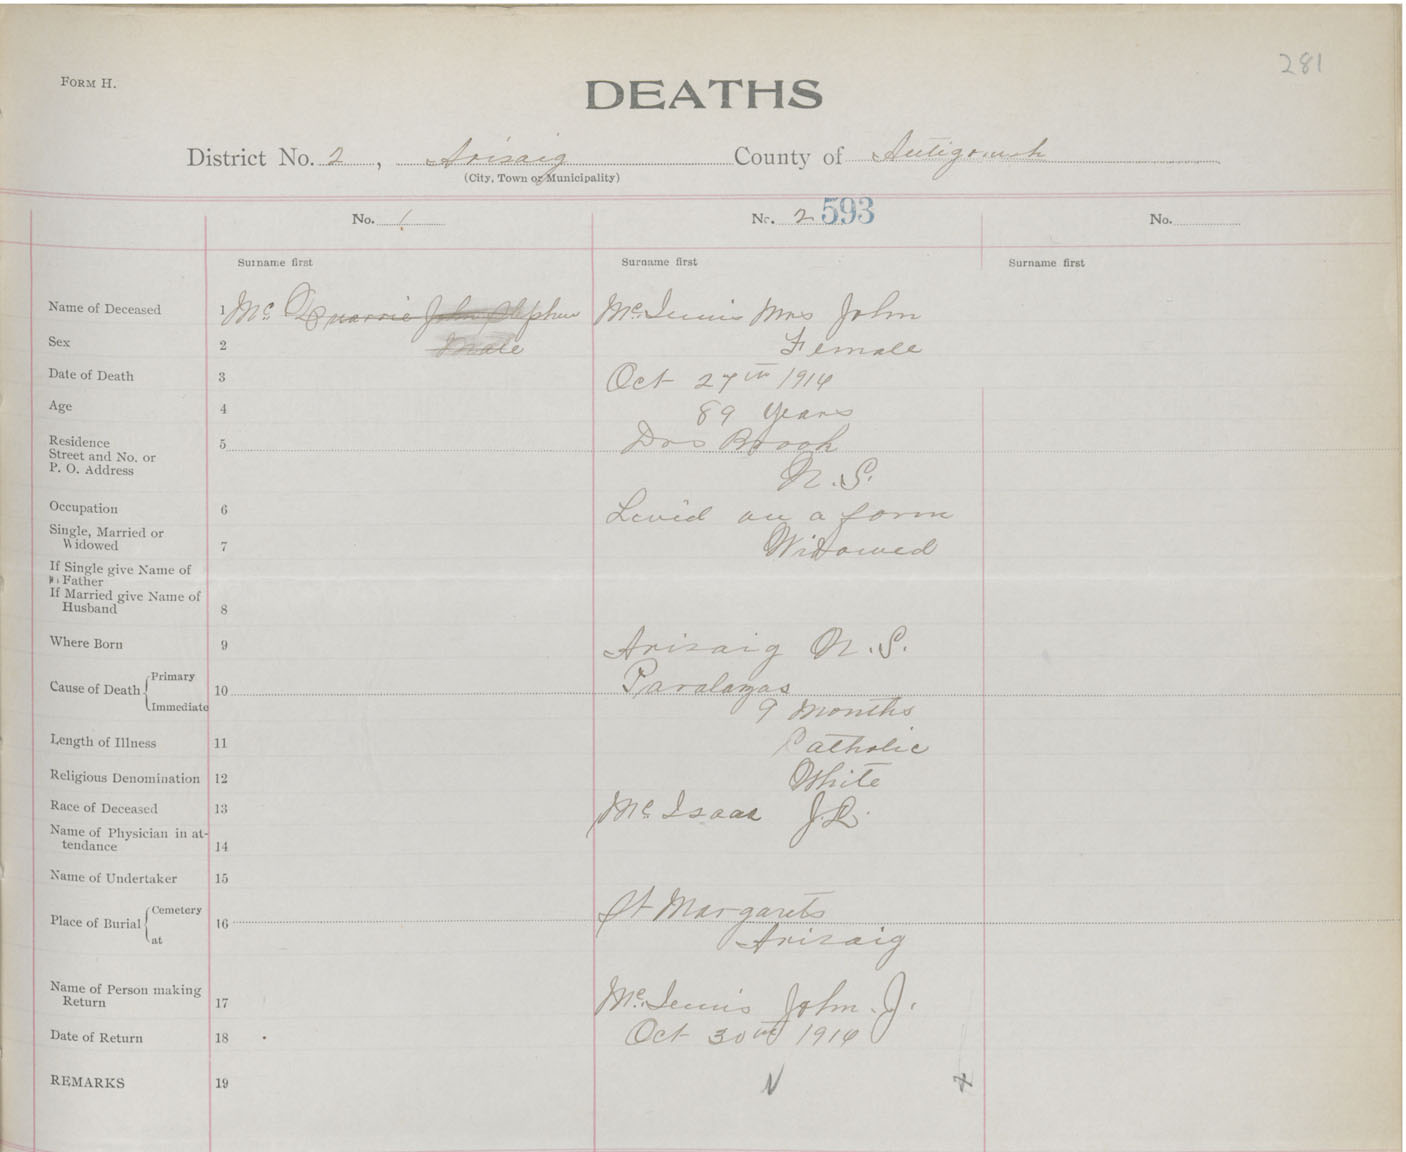 281
FORM H.
DEATHS
District No. 2, Arisaig County of Antigonish
(City, Town or Municipality)
No. 1 No. 2 593 No.
Surname first Surname first Surname first
Name of Deceased 1 Mc Quarrie John Stephen McInnis Mrs John
Sex 2 Male Female
Date of Death 3 Oct 27th 1914
Age 4 89 years
Residence 5 Brook
Street and No. or
P. O. Address N.S.
Occupation 6 Livd on a farm
Single, Married or
Widowed 7 Widowed
If Single give Name of
Father
If Married give Name of
Husband 8
Where Born 9 Arisaig N.S.
Cause of Death { Primary Immediate 10 Paralazas
9 months
Length of Illness 11 Catholic
Religious Denomination 12 White
Race of Deceased 13 Mc Isaac J.
Name of Physician in at-
tendance 14
Name of Undertaker 15
Place of Burial { Cemetery at 16 St Margarets
Arisaig
Name of Person making
Return 17 McInnis John. J.
Date of Return 18 Oct 30th 1914
REMARKS 19